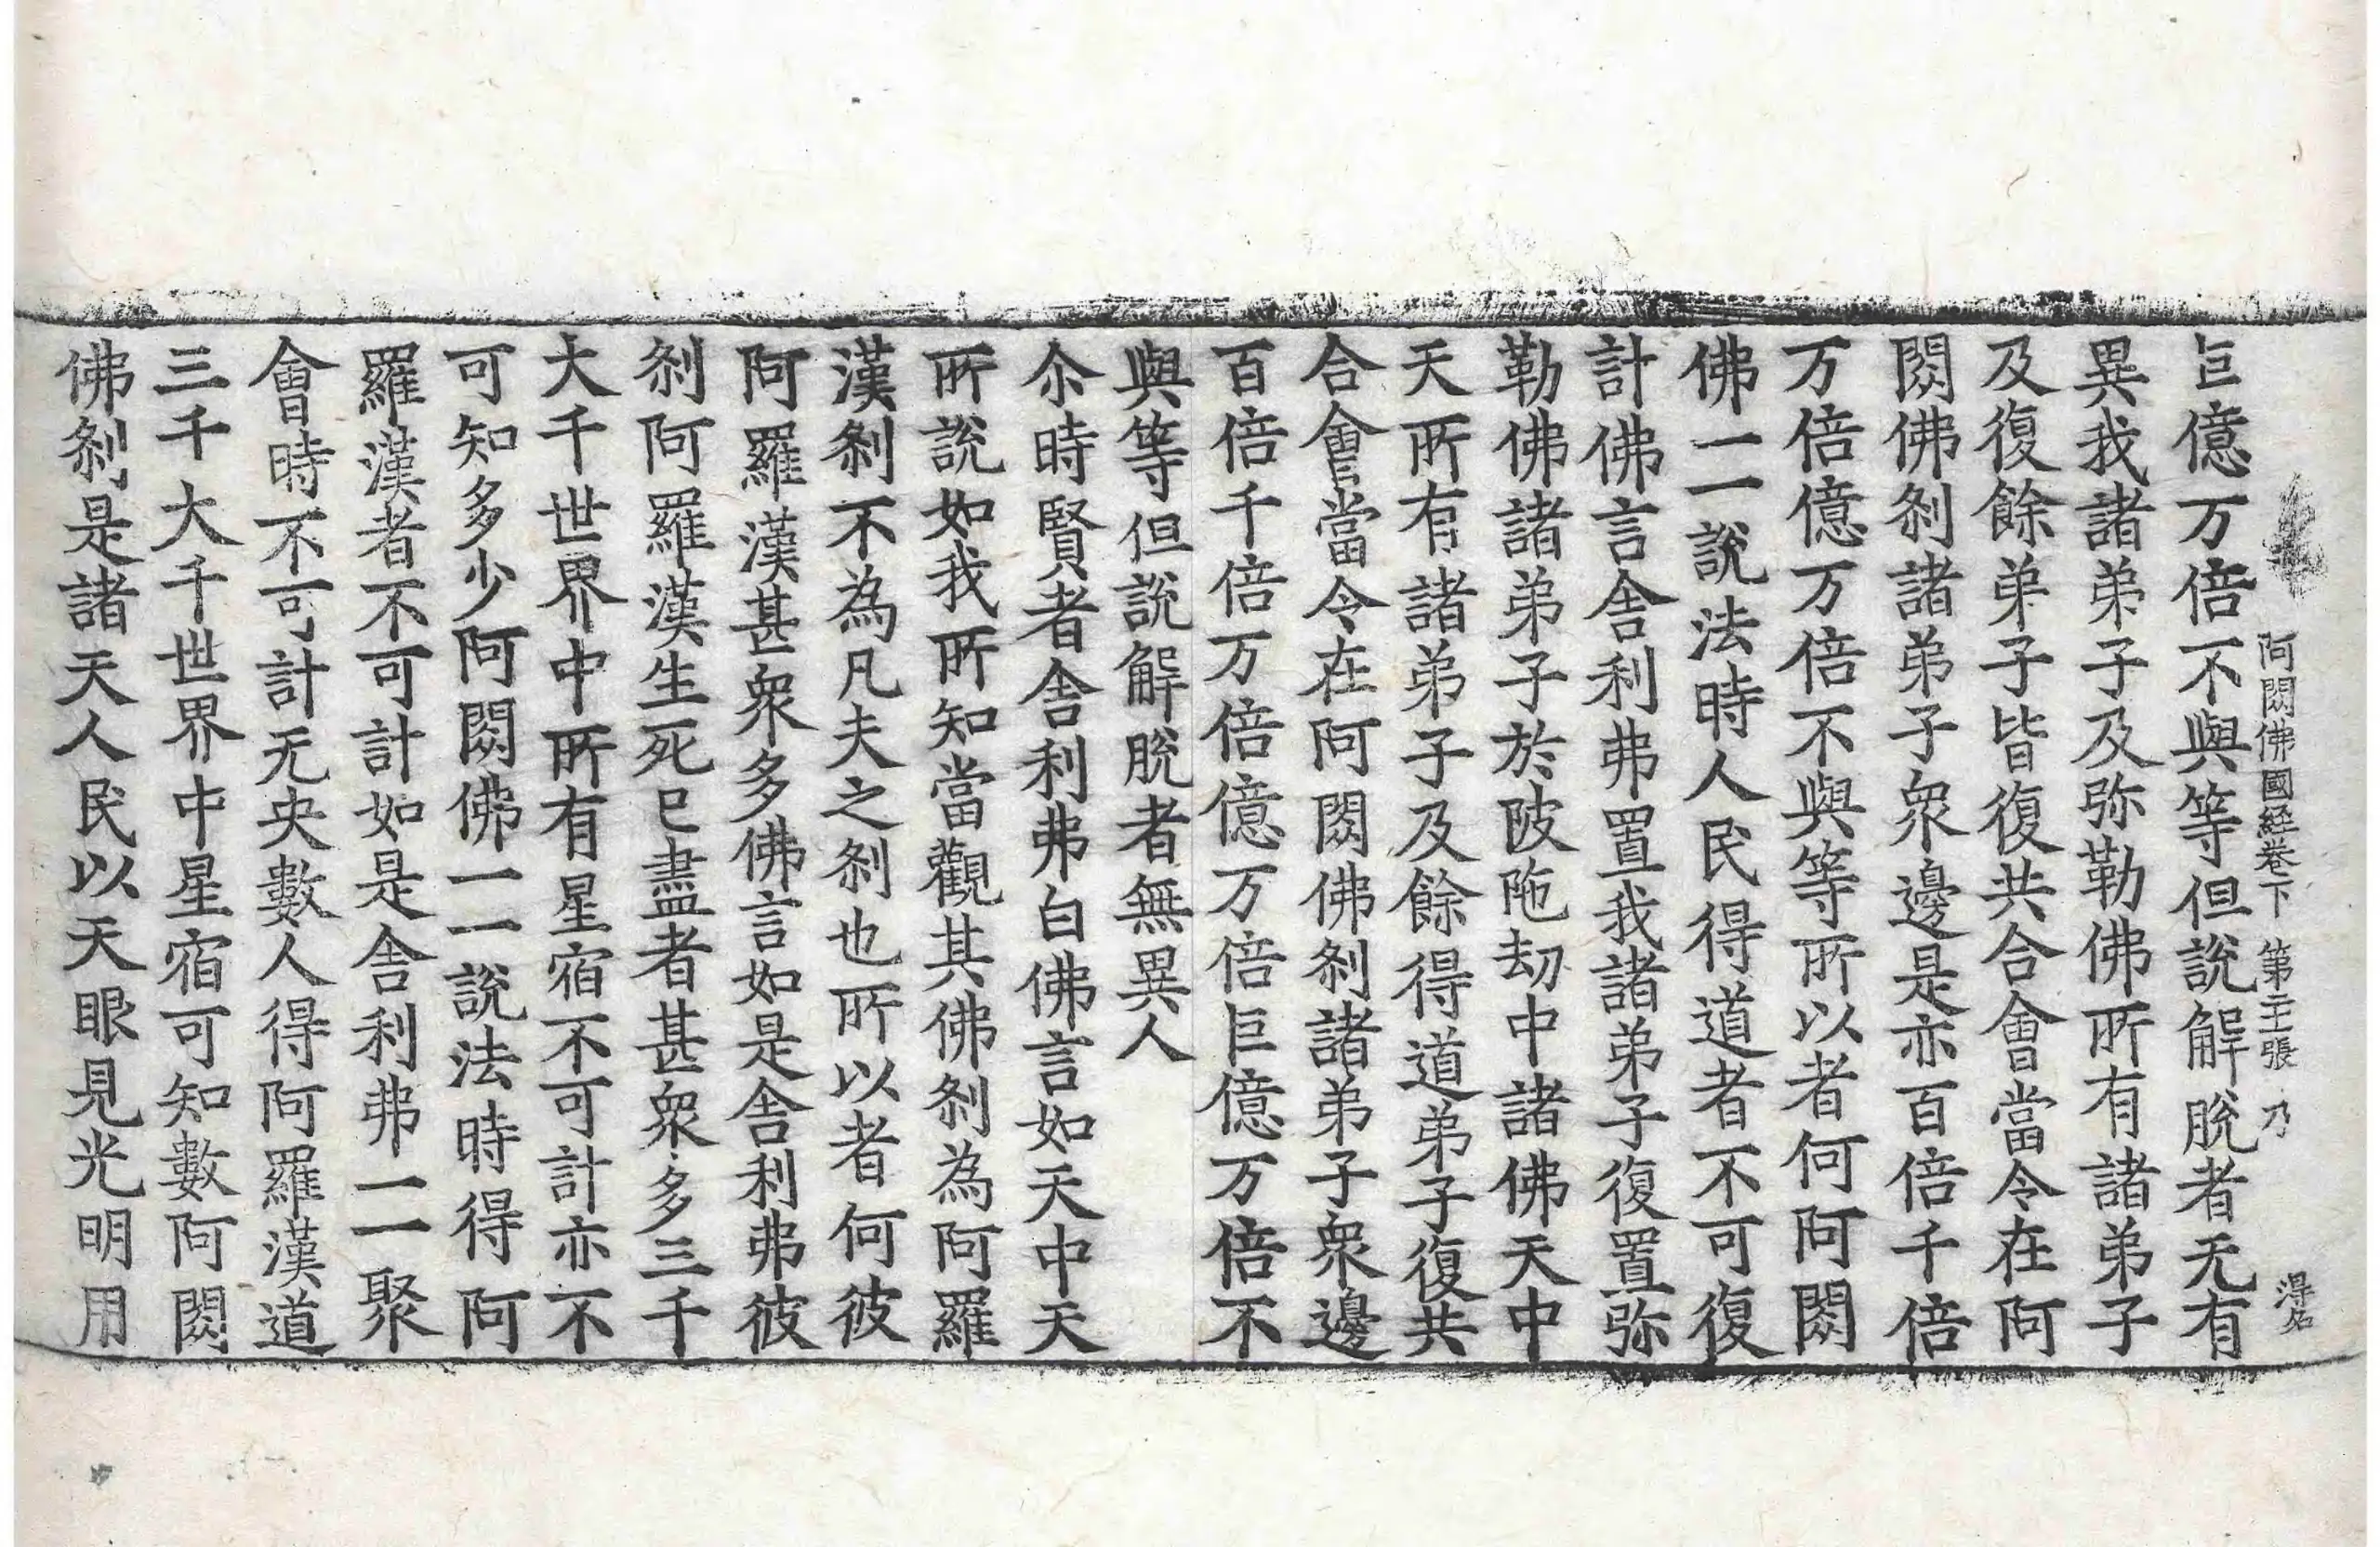 阿閦佛國経卷下 第二張 乃 淂名
巨億万倍不與等但說解脫者无有
異我諸弟子及弥勒佛所有諸弟子
及復餘弟子皆復共合會當令在阿
閦佛刹諸弟子衆邊是亦百倍千倍
万倍億万倍不與等所以者何阿閦
佛一一說法時人民得道者不可復
計佛言舎利弗置我諸弟子復置弥
勒佛諸弟子於陂陁劫中諸佛天中
天所有諸弟子及餘得道弟子復共
合會當令在阿閦佛刹諸弟子衆邊
百倍千倍万倍億万倍巨億万倍不
與等但說解脫者無異人
尒時賢者舎利弗白佛言如天中天
所說如我所知當觀其佛刹為阿羅
漢刹不為凡夫之刹也所以者何彼
阿羅漢甚衆多佛言如是舎利弗彼
刹阿羅漢生死已盡者甚衆多三千
大千世界中所有星宿不可計亦不
可知多少阿閦佛一一說法時得阿
羅漢者不可計如是舎利弗一一聚
會時不可計无央數人得阿羅漢道
三千大千世界中星宿可知數阿閦
佛刹是諸天人民以天眼見光明用